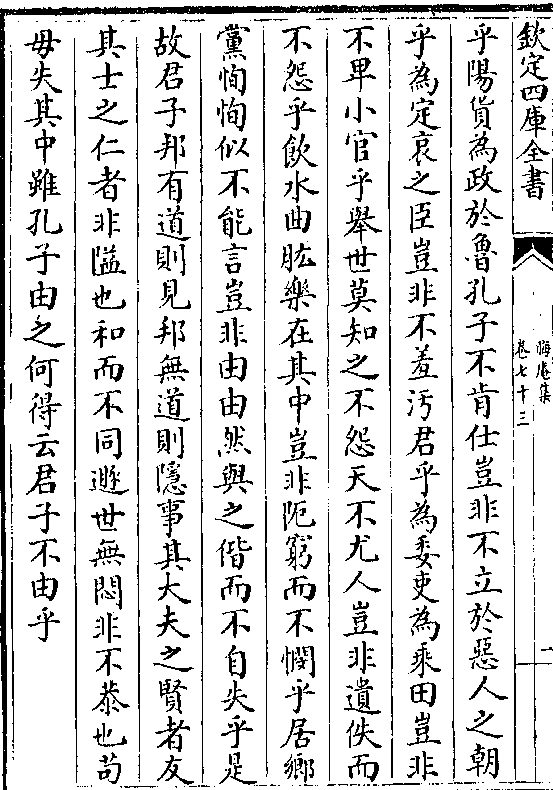 欽定四庫全書
晦庵集
卷七十三
一
乎陽貨為政於魯孔子不肯仕豈非不立於惡人之朝
乎為定哀之臣豈非不羞汚君乎為委吏為乘田豈非
不卑小官乎舉世莫知之不怨天不尤人豈非遺佚而
不怨乎飲水曲肱樂在其中豈非阨窮而不憫乎居鄉
黨恂恂似不能言豈非由由然與之偕而不自失乎是
故君子邦有道則見邦無道則隱事其大夫之賢者友
其士之仁者非隘也和而不同遯世無悶非不恭也苟
毋失其中雖孔子由之何得云君子不由乎